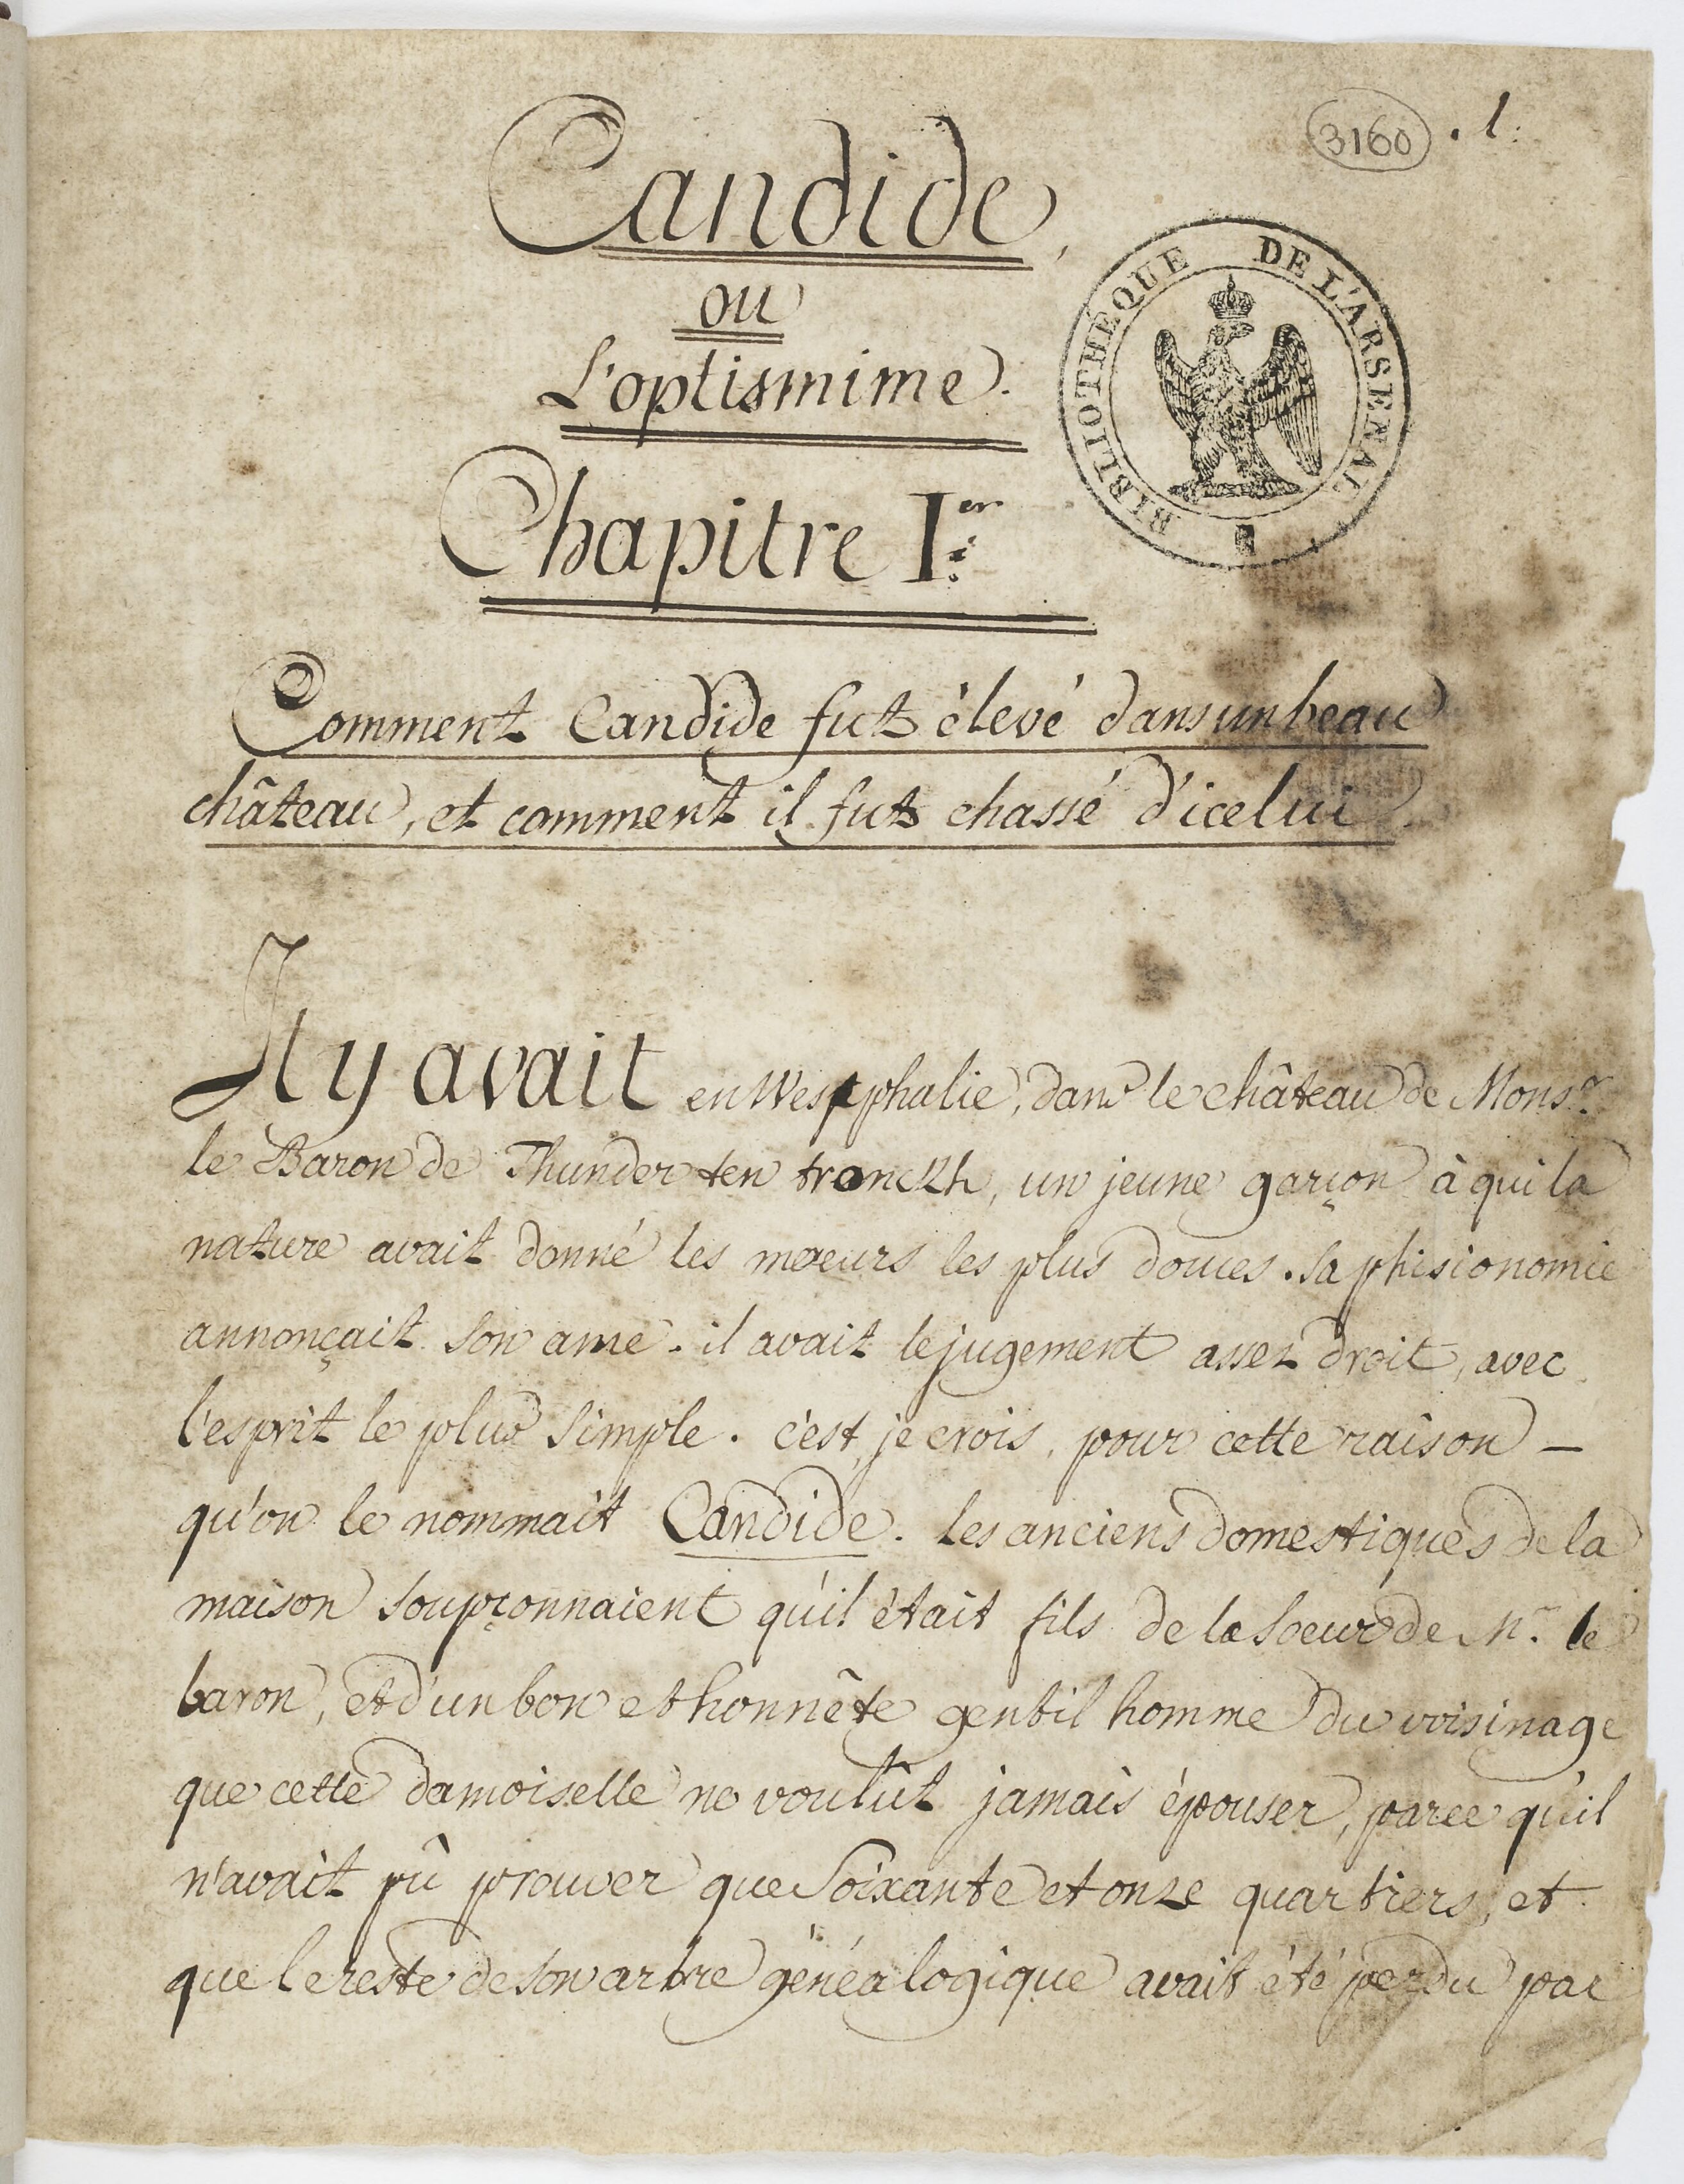 3160 . 1.
Candide,
ou
L'optismime.
BIBLIOTHÈQUE DE L'ARSENAL
Chapitre I.er
Comment Candide fut élevé dans un beau
château, et comment il fut chassé d'icelui.
Il y avait en Westphalie, dans le château de Mons.r
le Baron de Thunder ten tronckh, un jeune garçon à qui la
nature avait donné les moeurs les plus douces. Sa phisionomie
annonçait son ame. il avait le jugement assez droit, avec
l'esprit le plus simple. c'est, je crois, pour cette raison –
qu'on le nommait Candide. les anciens domestiques de la
maison soupçonnaient qu'il était fils de la soeur de M.r le
baron, et d'un bon et honnête gentil homme du voisinage
que cette damoiselle ne voulût jamais épouser, parce qu'il
n'avait pû prouver que soixante et onze quartiers, et
que le reste de son arbre généalogique avait été perdu par